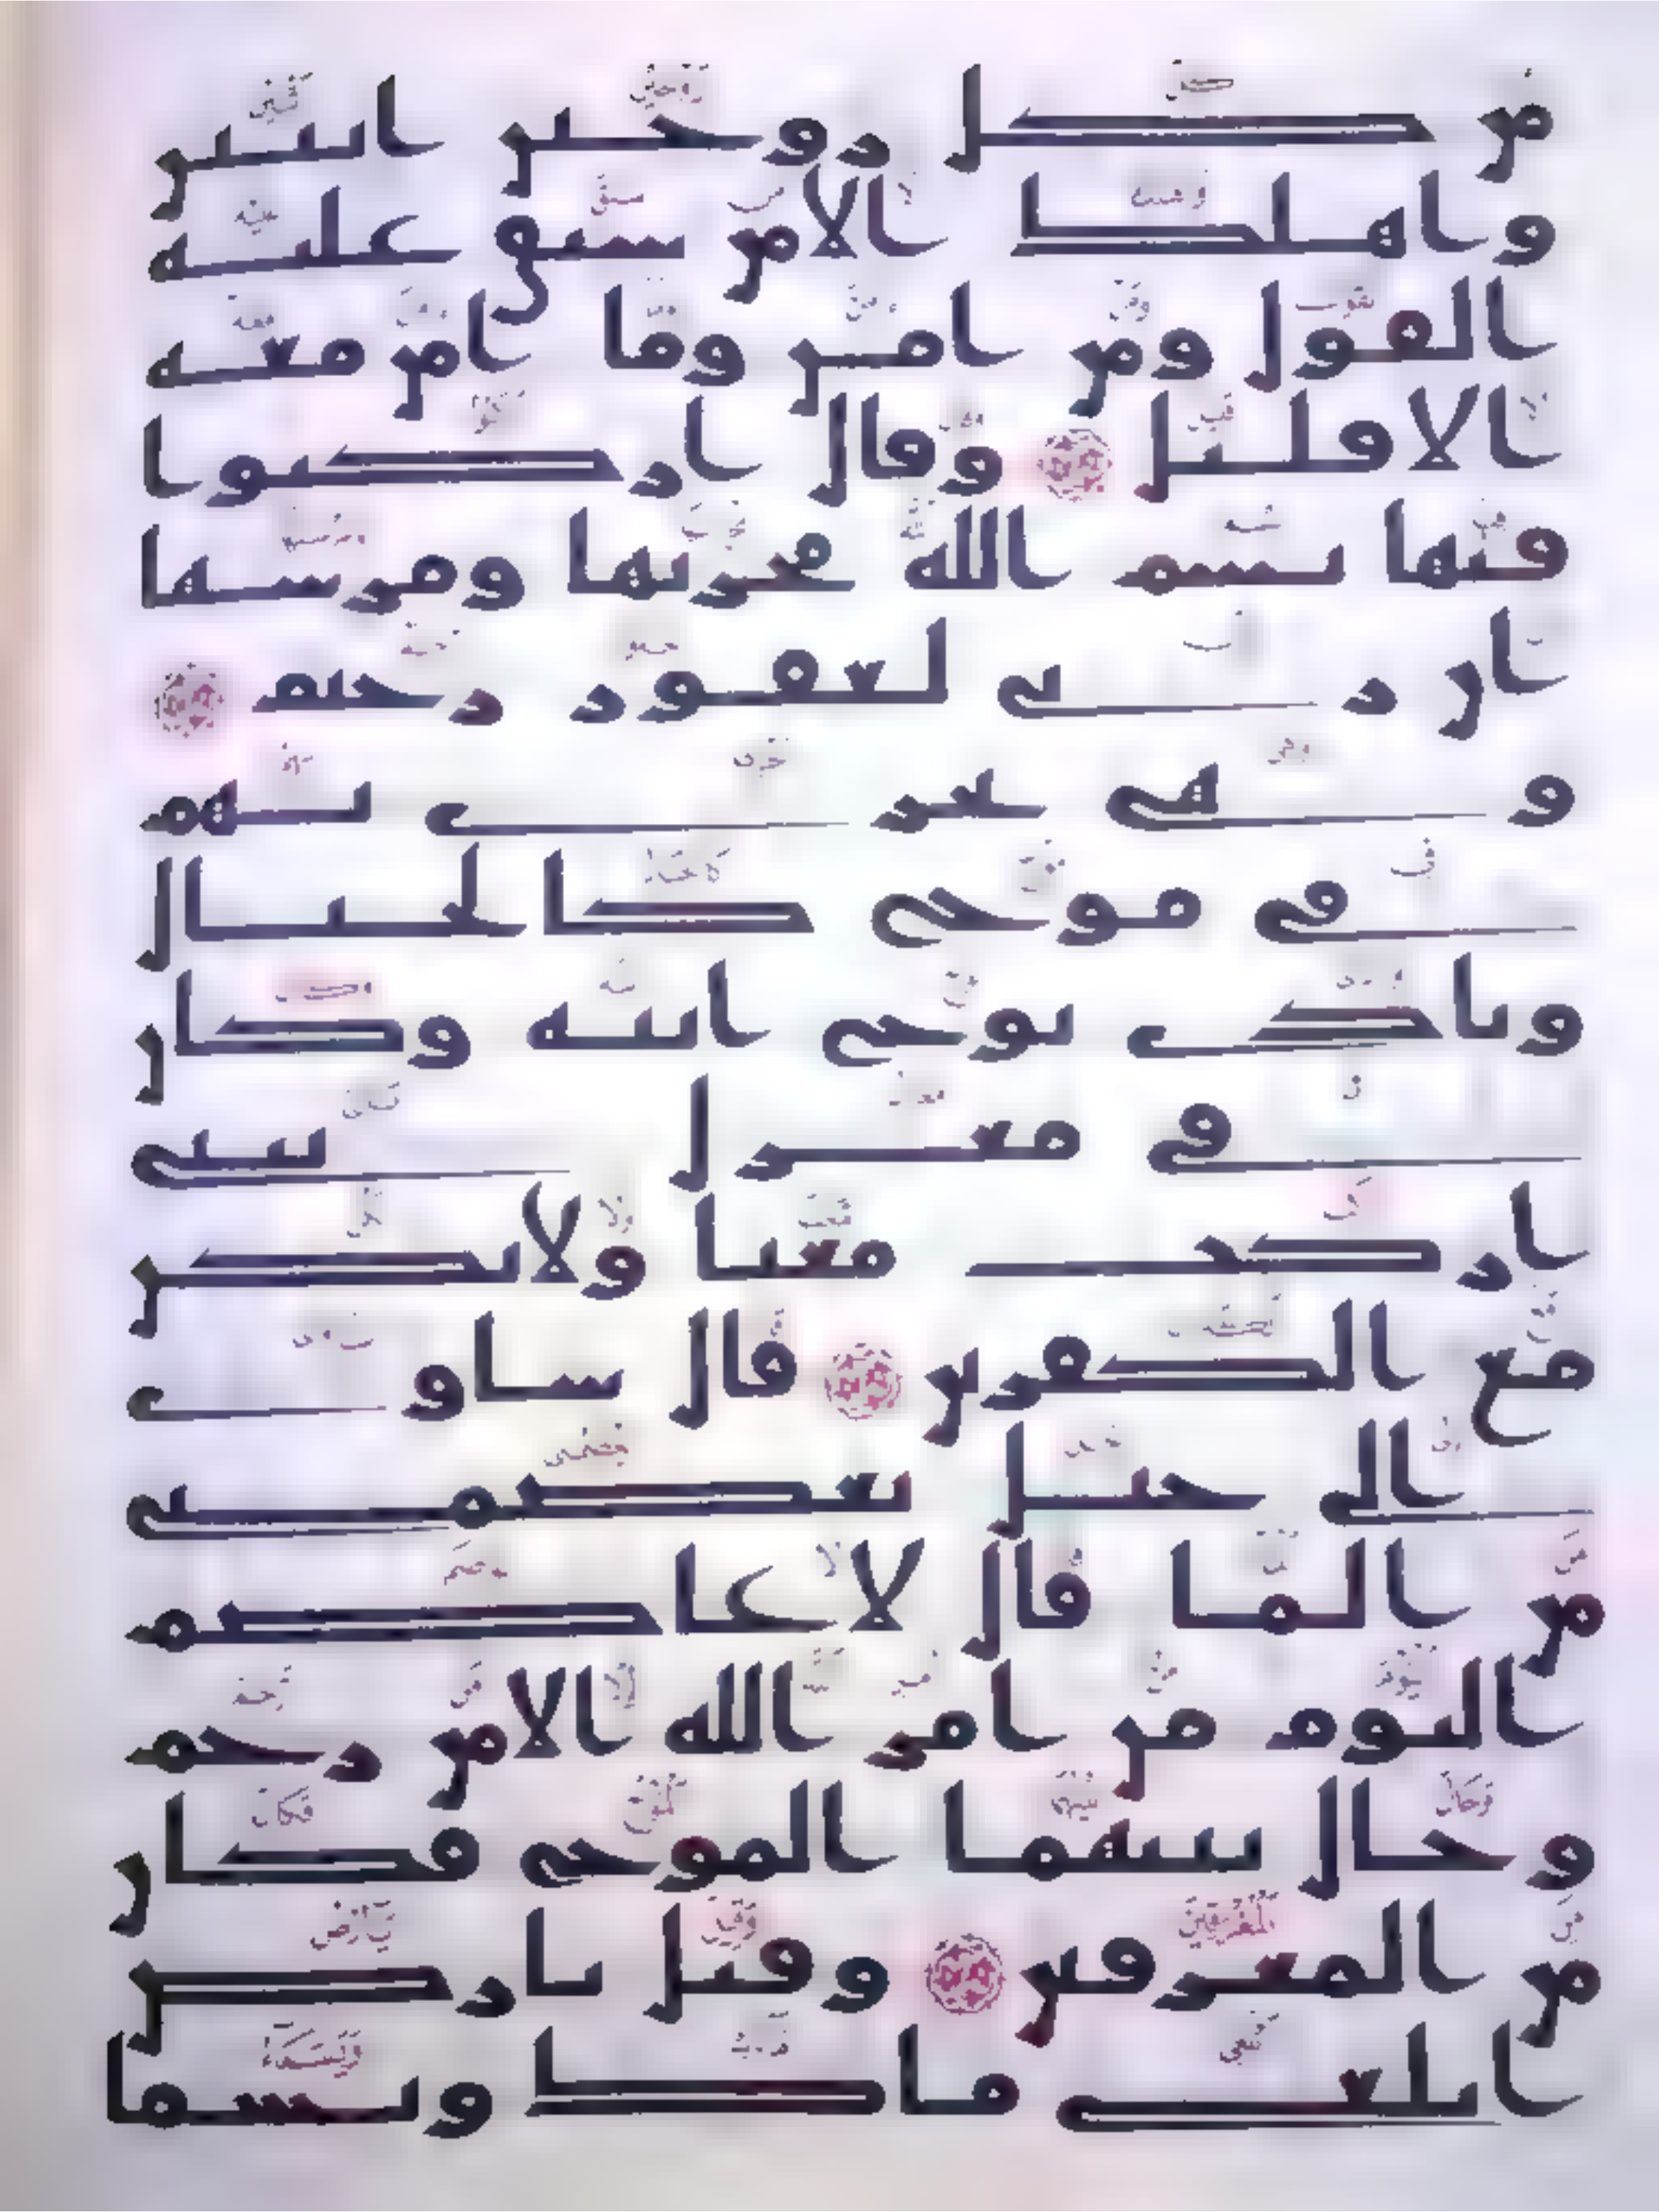 من كل زوجين اثنين
واهلك الا من سبق عليه
القول ومن امن وما امن معه
الا قليل وقال اركبوا
فيها بسم الله مجريها ومرسها
ان ربي لغفور رحيم
وهي تجري بهم
في موج كالجبال
ونادى نوح ابنه وكان
في معزل يبني
اركب معنا ولا تكن
مع الكفرين قال ساوي
الى جبل يعصمني
من الما قال لا عاصم
اليوم من امر الله الا من رحم
وحال بينهما الموج فكان
من المغرقين وقيل يارض
ابلعي ماك ويسما